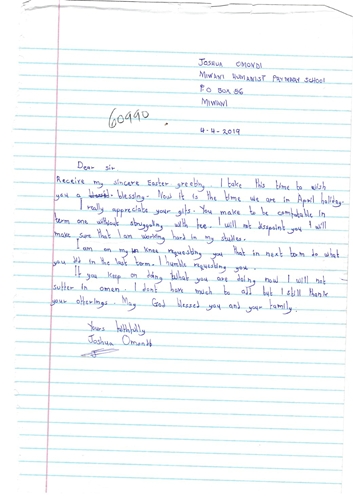 JOSHUA OMONDI
MIWANI HUMANIST PRIMARY SCHOOL
P.O BOX 86
MIWANI
60990
4-4-2019
Dear sir
Receive my sincere Easter greeting. I take this time to wish
you a blessing. Now it is the time we are in April holiday.
I really appreciate your gifts. You make to be comfortable in
term one without struggling with fee. I will not disapoint you I will
make sure that I am working hard in my studies.
I am on my knee requesting you that in next term do what
you did in the last term. I humble requesting you.
If you keep on doing what you are doing now I will not
suffer in omen. I dont have much to add but I still thank
your offerings. May God blessed you and your family.
Yours faithfully
Joshua Omondi